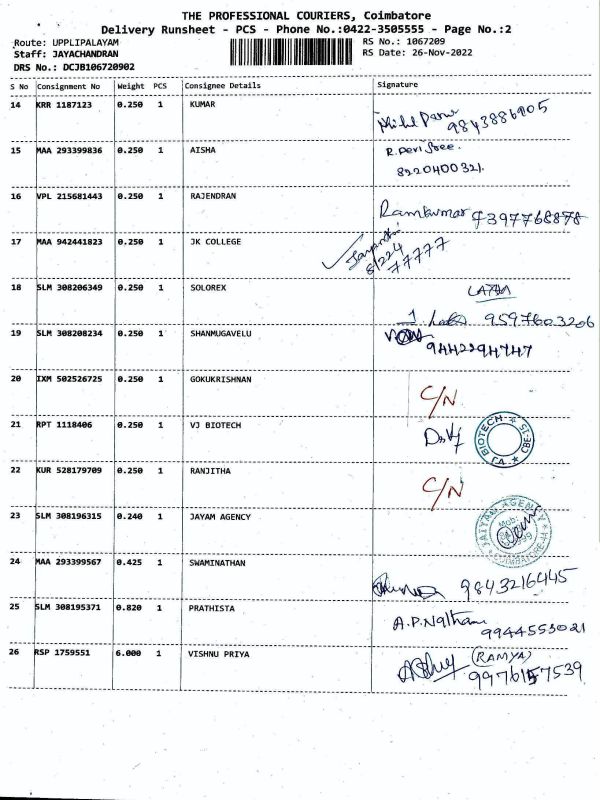 THE PROFESSIONAL COURIERS, Coimbatore
Delivery Runsheet - PCS - Phone No.:0422-3505555 - Page No.:2
Route: UPPLIPALAYAM
RS No.: 1067209
Staff: JAYACHANDRAN
RS Date: 26-Nov-2022
DRS No.: DCJB106720902
S No Consignment No Weight PCS Consignee Details Signature
14 KRR 1187123 0.250 1 KUMAR
9843886905
15 MAA 293399836 0.250 1 AISHA R. Devi Sree.
8220400321.
16 VPL 215681443 0.250 1 RAJENDRAN
Ramkumar 9397768878
17 MAA 942441823 0.250 1 JK COLLEGE
Jayanthi
81224
77777
18 SLM 308206349 0.250 1 SOLOREX LATHA
9597603206
19 SLM 308208234 0.250 1 SHANMUGAVELU
9442294747
20 IXM 502526725 0.250 1 GOKUKRISHNAN C/N
21 RPT 1118406 0.250 1 VJ BIOTECH
VJ BIOTECH CBE-15
22 KUR 528179709 0.250 1 RANJITHA C/N
23 SLM 308196315 0.240 1 JAYAM AGENCY
JAIYAM AGENCY
Mob:
COIMBATORE
24 MAA 293399567 0.425 1 SWAMINATHAN
9843216445
25 SLM 308195371 0.820 1 PRATHISTA
A.P.Nathan
9944553021
26 RSP 1759551 6.000 1 VISHNU PRIYA
(RAMYA)
9976157539